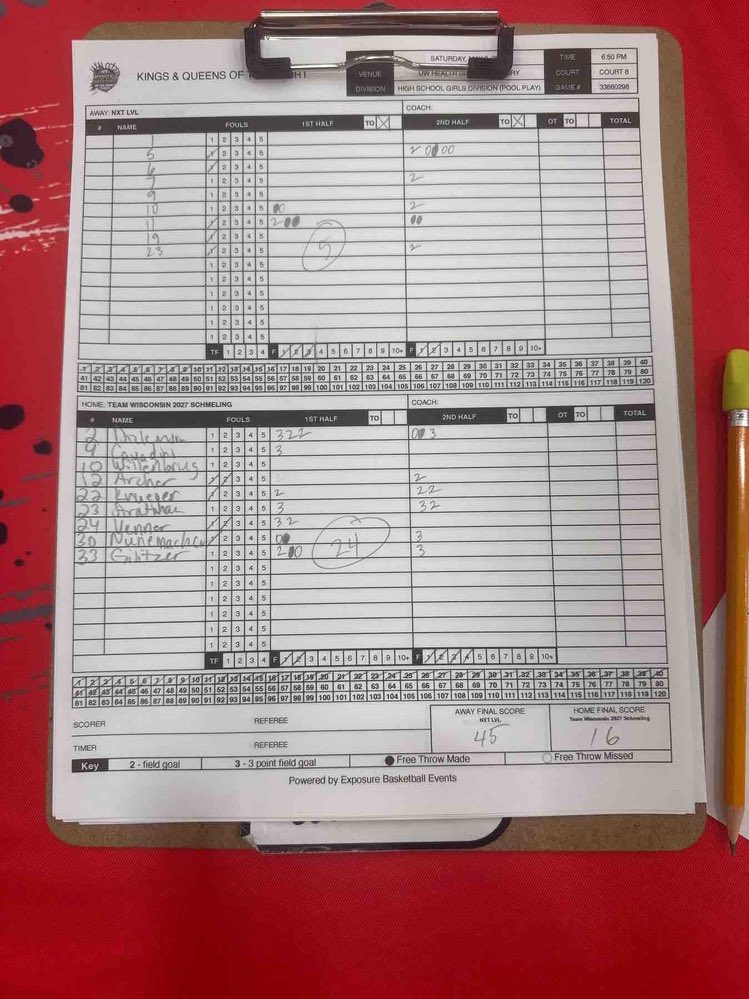 KINGS & QUEENS OF
SATURDAY,
TIME 6:50 PM
VENUE UW HEALTH
COURT COURT 8
DIVISION HIGH SCHOOL GIRLS DIVISION (POOL PLAY)
GAME # 33860298
AWAY: NXT LVL COACH:
# NAME FOULS 1ST HALF TO 2ND HALF TO OT TO TOTAL
1 1 2 3 4 5
5 1 2 3 4 5 2
6 1 2 3 4 5
7 1 2 3 4 5 2
9 1 2 3 4 5
10 1 2 3 4 5 2
11 1 2 3 4 5 2
19 1 2 3 4 5 5
23 1 2 3 4 5 2
1 2 3 4 5
1 2 3 4 5
1 2 3 4 5
1 2 3 4 5
1 2 3 4 5
1 2 3 4 5
TF 1 2 3 4 F 1 2 3 4 5 6 7 8 9 10+ F 1 2 3 4 5 6 7 8 9 10+
1 2 3 4 5 6 7 8 9 10 11 12 13 14 15 16 17 18 19 20 21 22 23 24 25 26 27 28 29 30 31 32 33 34 35 36 37 38 39 40
41 42 43 44 45 46 47 48 49 50 51 52 53 54 55 56 57 58 59 60 61 62 63 64 65 66 67 68 69 70 71 72 73 74 75 76 77 78 79 80
81 82 83 84 85 86 87 88 89 90 91 92 93 94 95 96 97 98 99 100 101 102 103 104 105 106 107 108 109 110 111 112 113 114 115 116 117 118 119 120
HOME: TEAM WISCONSIN 2027 SCHMELING COACH:
# NAME FOULS 1ST HALF TO 2ND HALF TO OT TO TOTAL
2 1 2 3 4 5 322 3
4 1 2 3 4 5 3
10 1 2 3 4 5
12 Archer 1 2 3 4 5 2
22 Krueger 1 2 3 4 5 2 22
23 1 2 3 4 5 3 32
24 1 2 3 4 5 32
30 Nunemacher 1 2 3 4 5 24 3
33 1 2 3 4 5 2 3
1 2 3 4 5
1 2 3 4 5
1 2 3 4 5
1 2 3 4 5
1 2 3 4 5
1 2 3 4 5
TF 1 2 3 4 F 1 2 3 4 5 6 7 8 9 10+ F 1 2 3 4 5 6 7 8 9 10+
1 2 3 4 5 6 7 8 9 10 11 12 13 14 15 16 17 18 19 20 21 22 23 24 25 26 27 28 29 30 31 32 33 34 35 36 37 38 39 40
41 42 43 44 45 46 47 48 49 50 51 52 53 54 55 56 57 58 59 60 61 62 63 64 65 66 67 68 69 70 71 72 73 74 75 76 77 78 79 80
81 82 83 84 85 86 87 88 89 90 91 92 93 94 95 96 97 98 99 100 101 102 103 104 105 106 107 108 109 110 111 112 113 114 115 116 117 118 119 120
SCORER REFEREE
TIMER REFEREE
AWAY FINAL SCORE
NXT LVL
45
HOME FINAL SCORE
Team Wisconsin 2027 Schmeling
16
Key 2 - field goal 3 - 3 point field goal Free Throw Made Free Throw Missed
Powered by Exposure Basketball Events